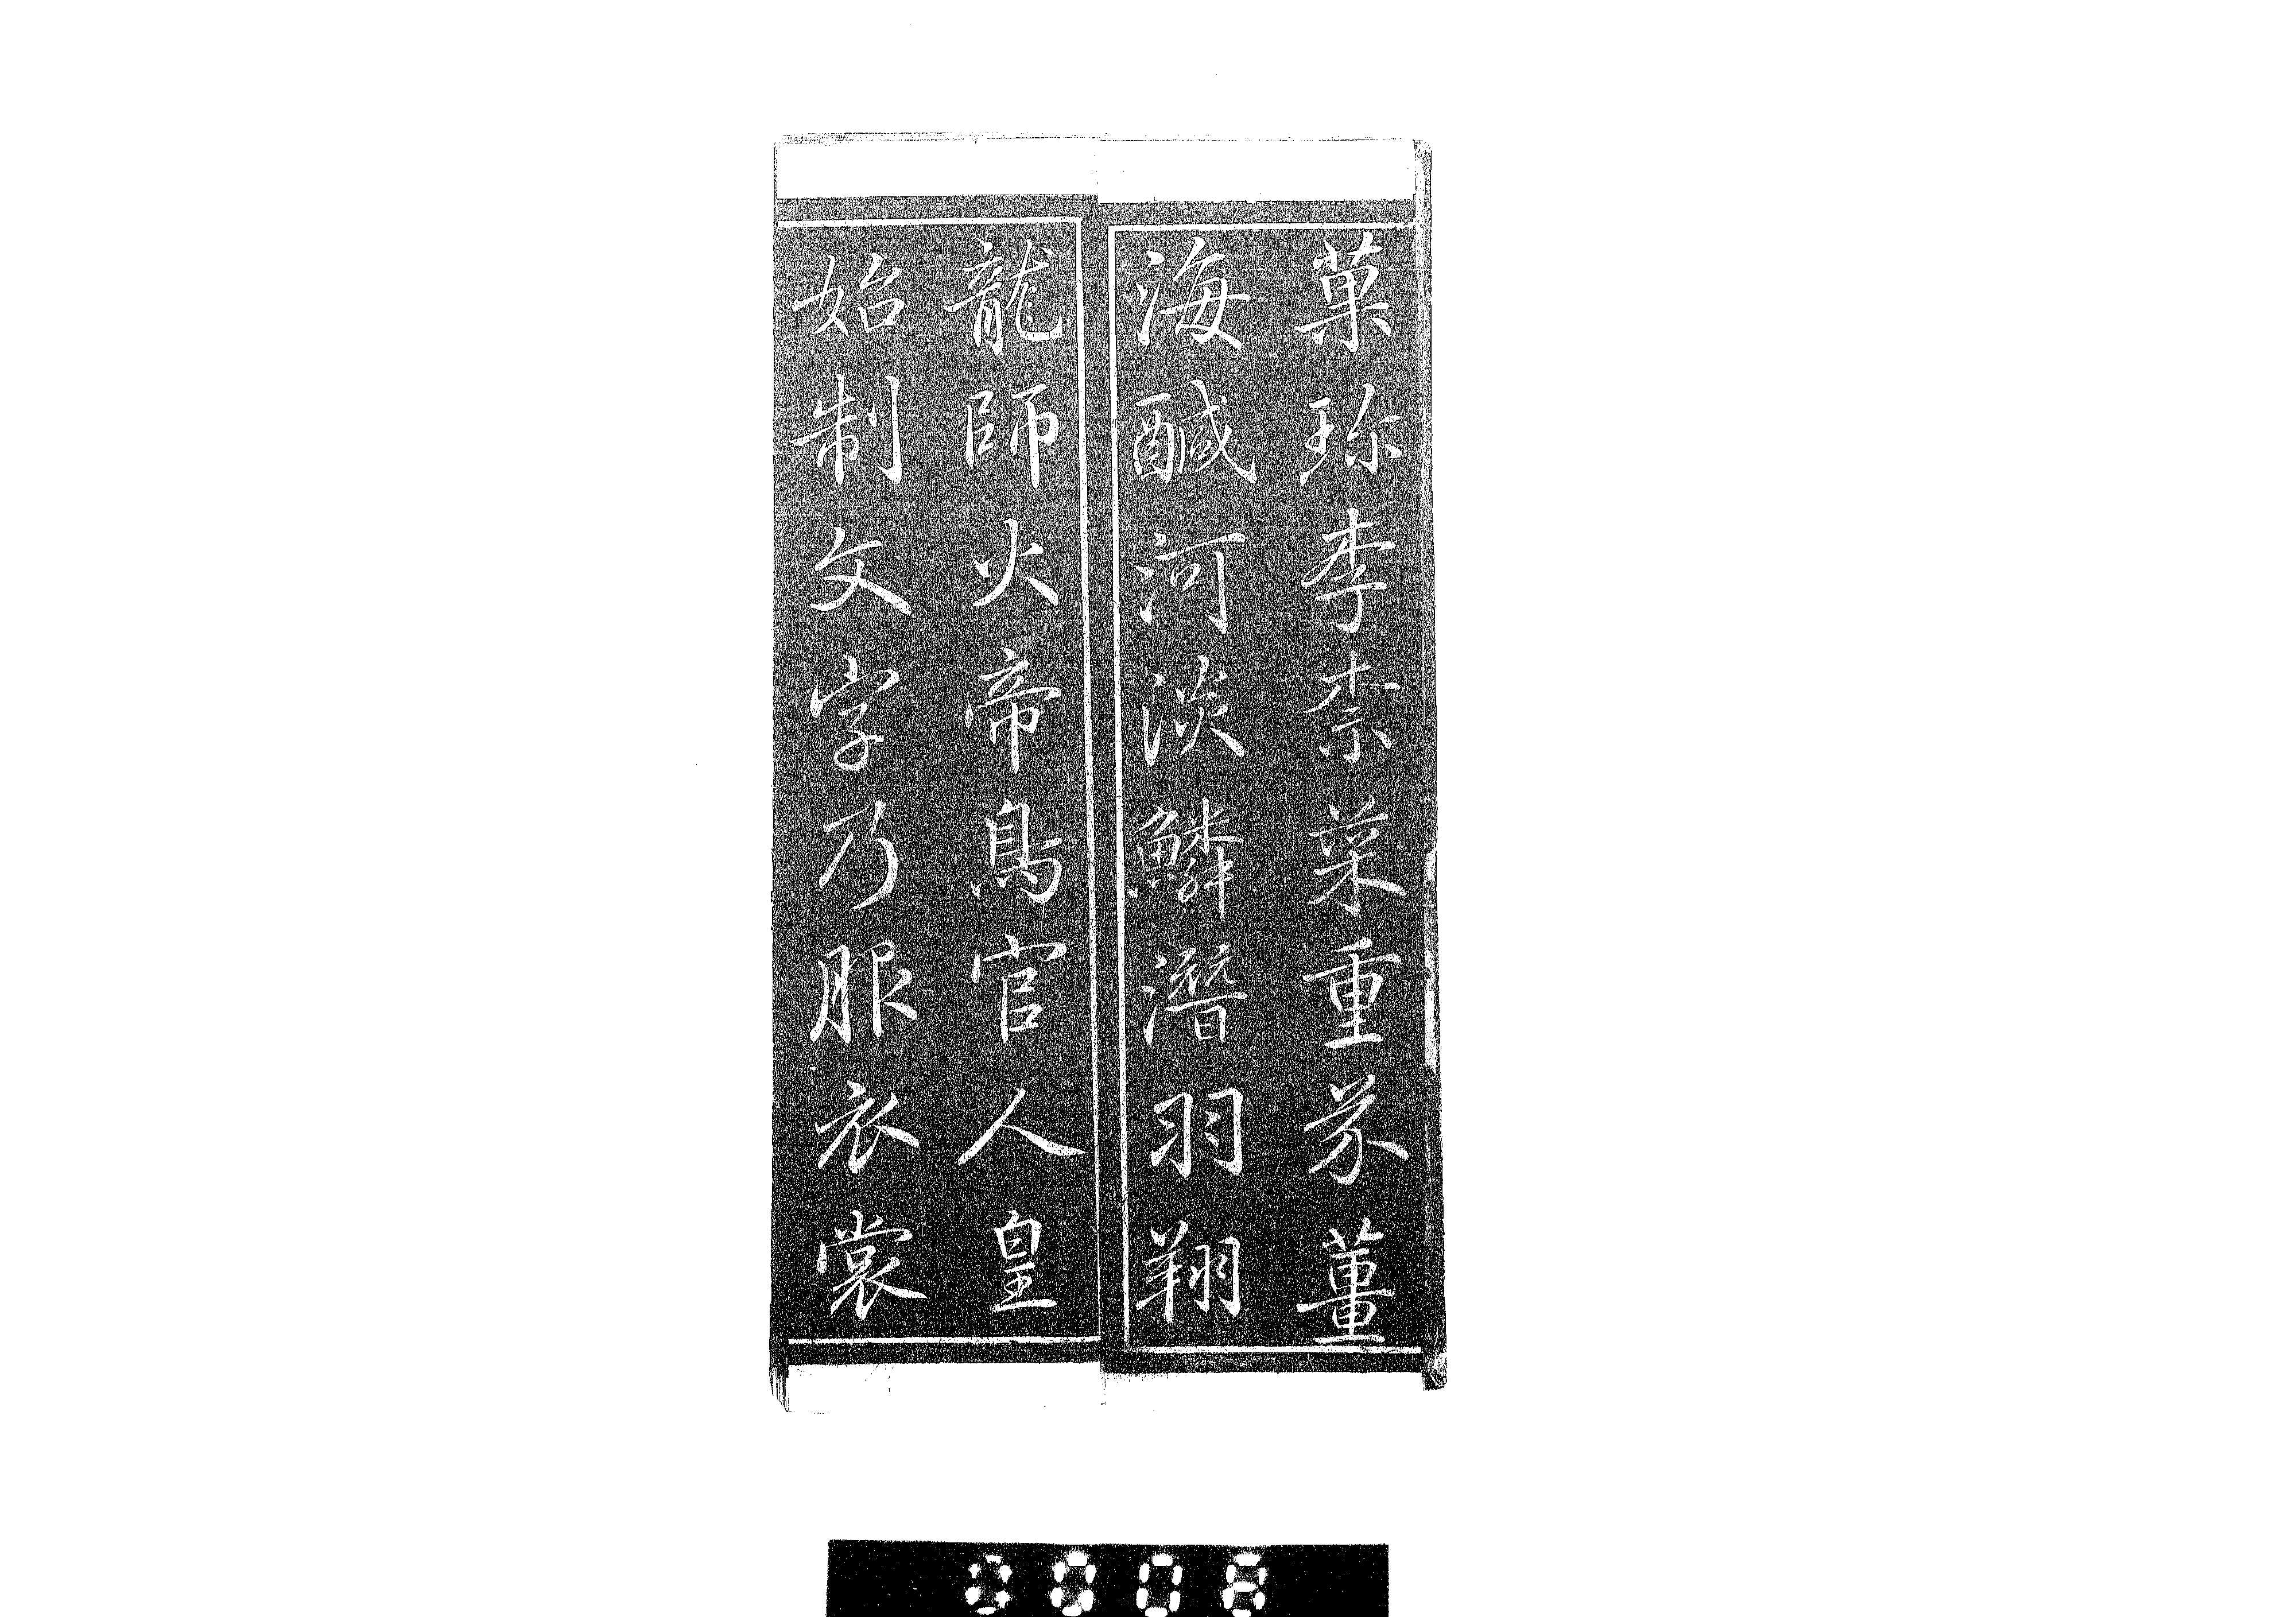 菓珎李柰菜重芥薑
海醎河淡鱗潛羽翔
龍師火帝鳥官人皇
始制文字乃服衣裳
0008